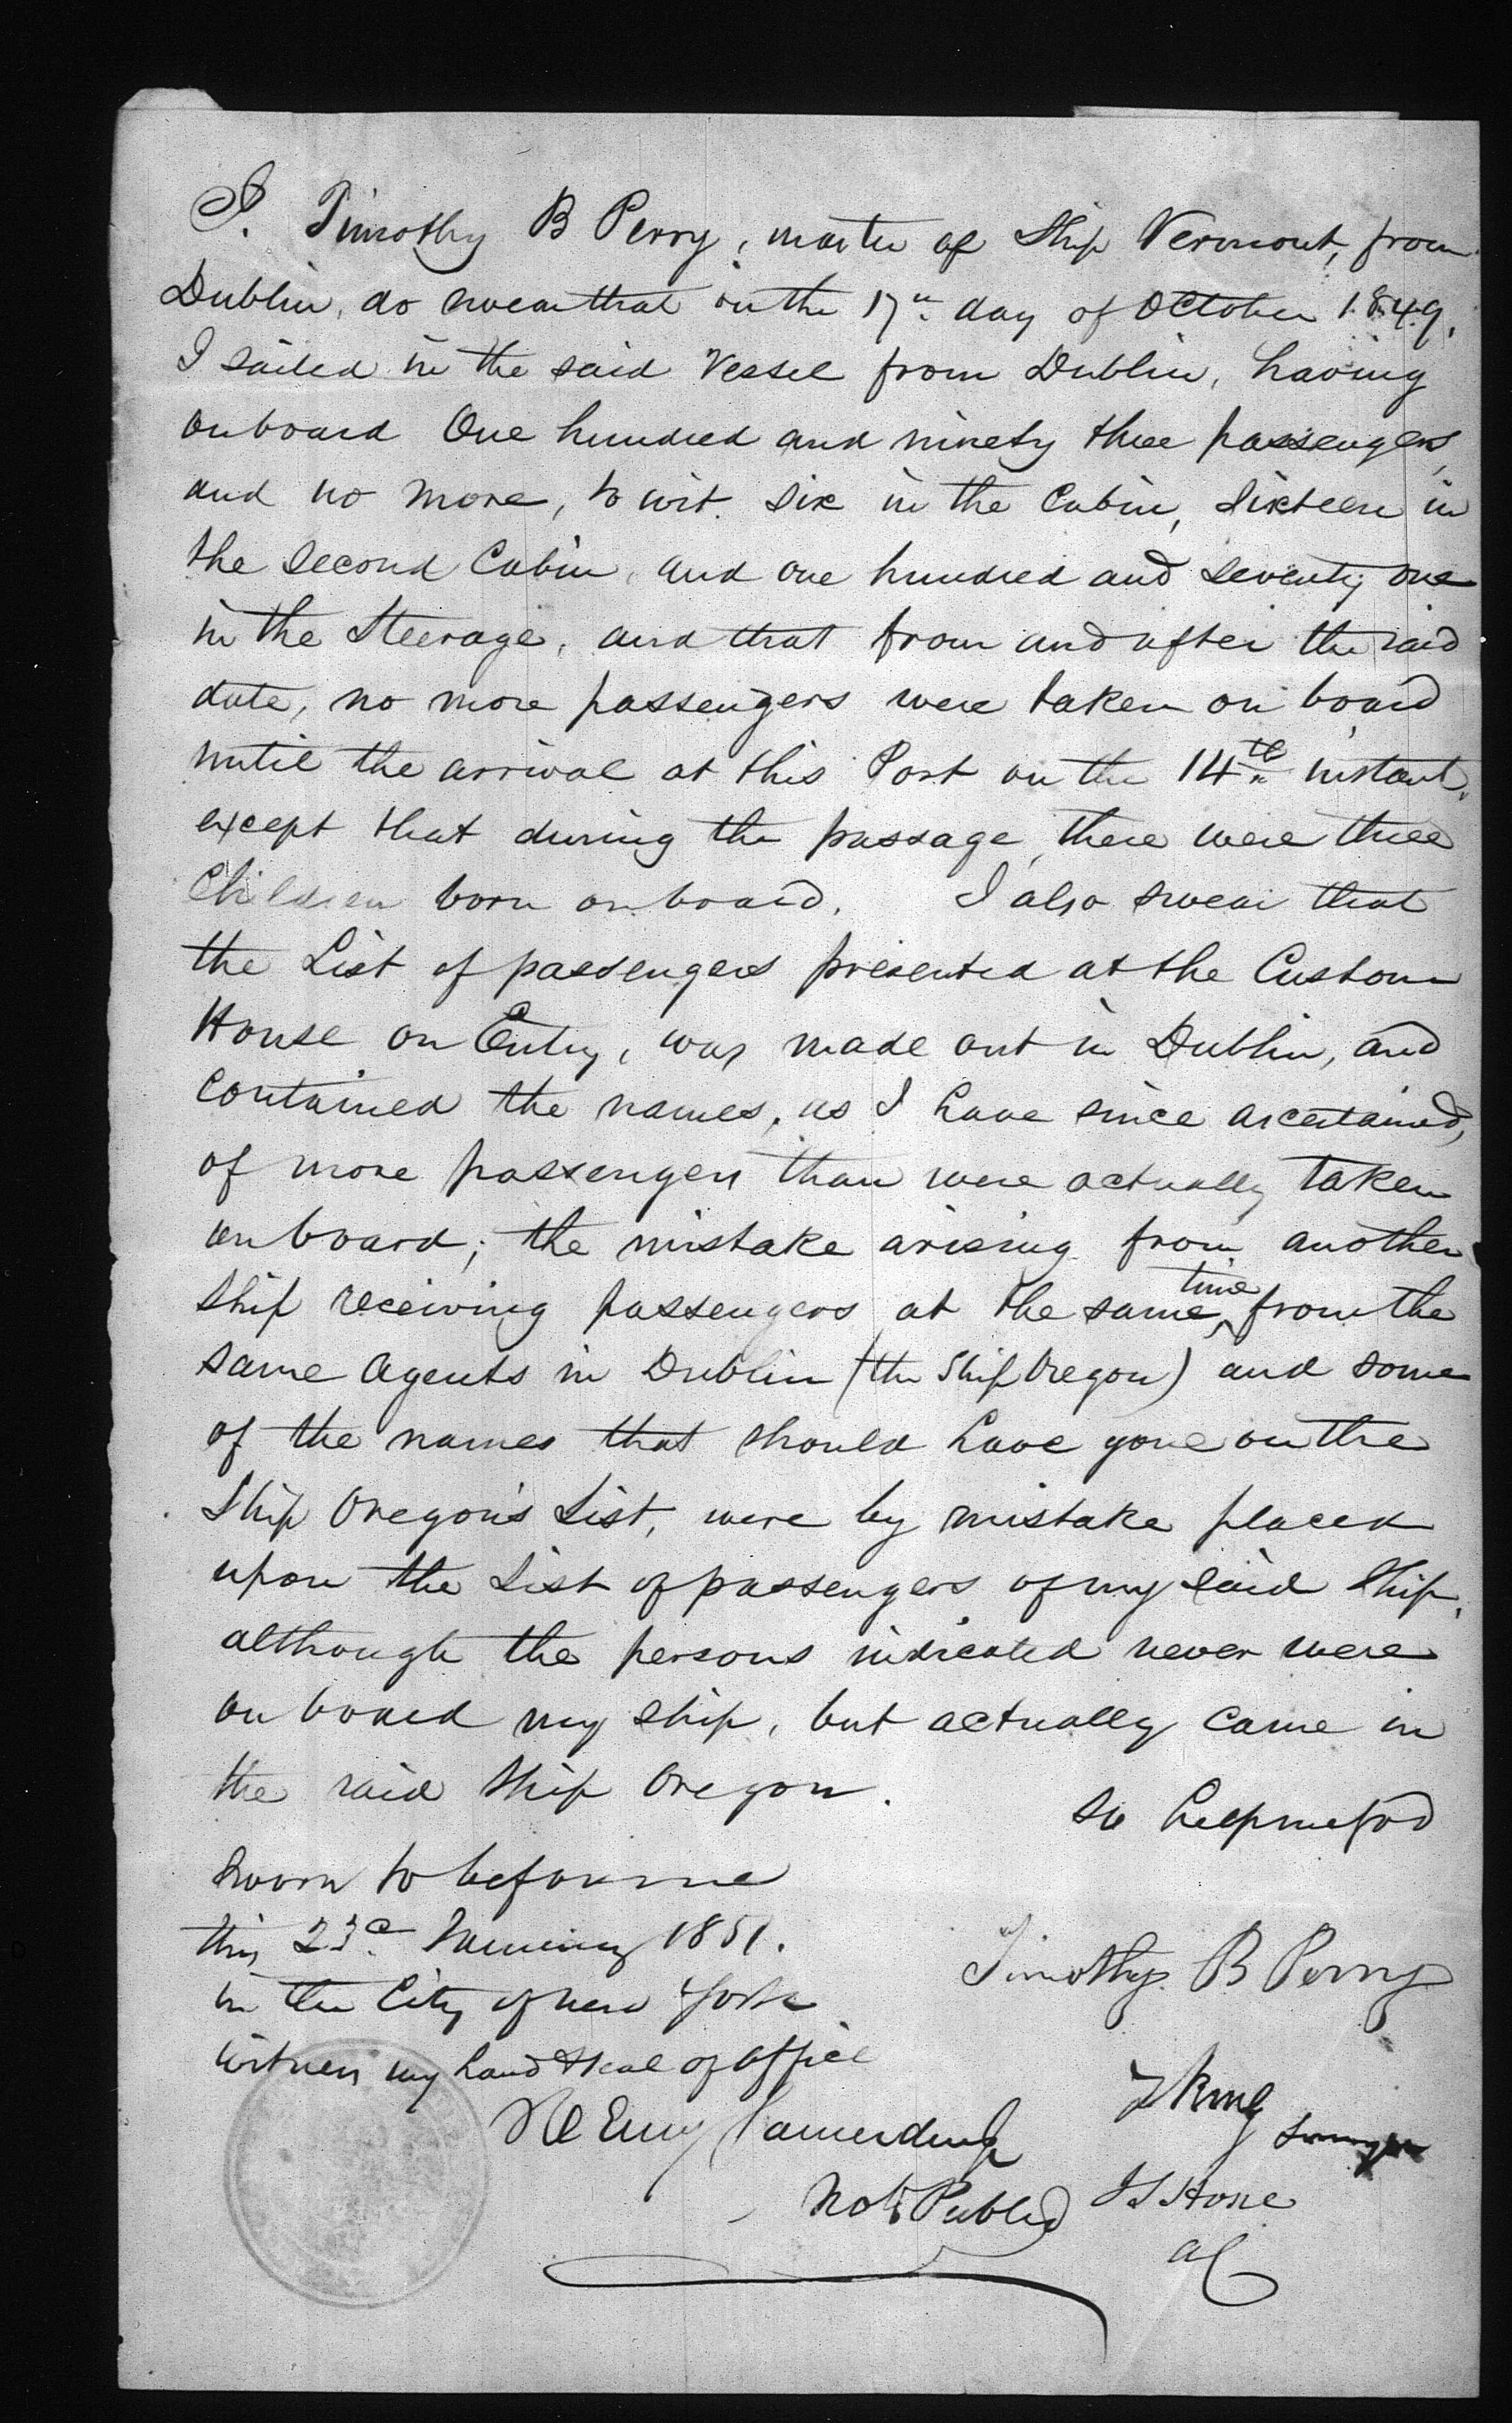 I. Timothy B Perry, master of Ship Vermont, from
Dublin, do swear that on the 17th day of October 1849,
I sailed in the said Vessel from Dublin, having
onboard One hundred and ninety three passengers,
and no more, to wit. Six in the Cabin, Sixteen in
the Second Cabin, and one hundred and seventy one
in the Steerage, and that from and after the said
date, no more passengers were taken on board
until the arrival at this Port on the 14th instant,
except that during the passage, there were three
Children born on board. I also swear that
the List of passengers presented at the Custom
House on Entry, was made out in Dublin, and
contained the names, as I have since ascertained,
of more passengers than were actually taken
on board; the mistake arising from another
Ship receiving passengers at the same time from the
same Agents in Dublin (the Ship Oregon) and some
of the names that should have gone on the
Ship Oregon's List, were by mistake placed
upon the List of passengers of my said Ship,
although the persons indicated never were
on board my ship, but actually came in
the said Ship Oregon.
So help me God
Sworn to before me
this 23d January 1851.
in the City of New York
Timothy B Perry
Witness my hand & Seal of Office
Henry
Not Public